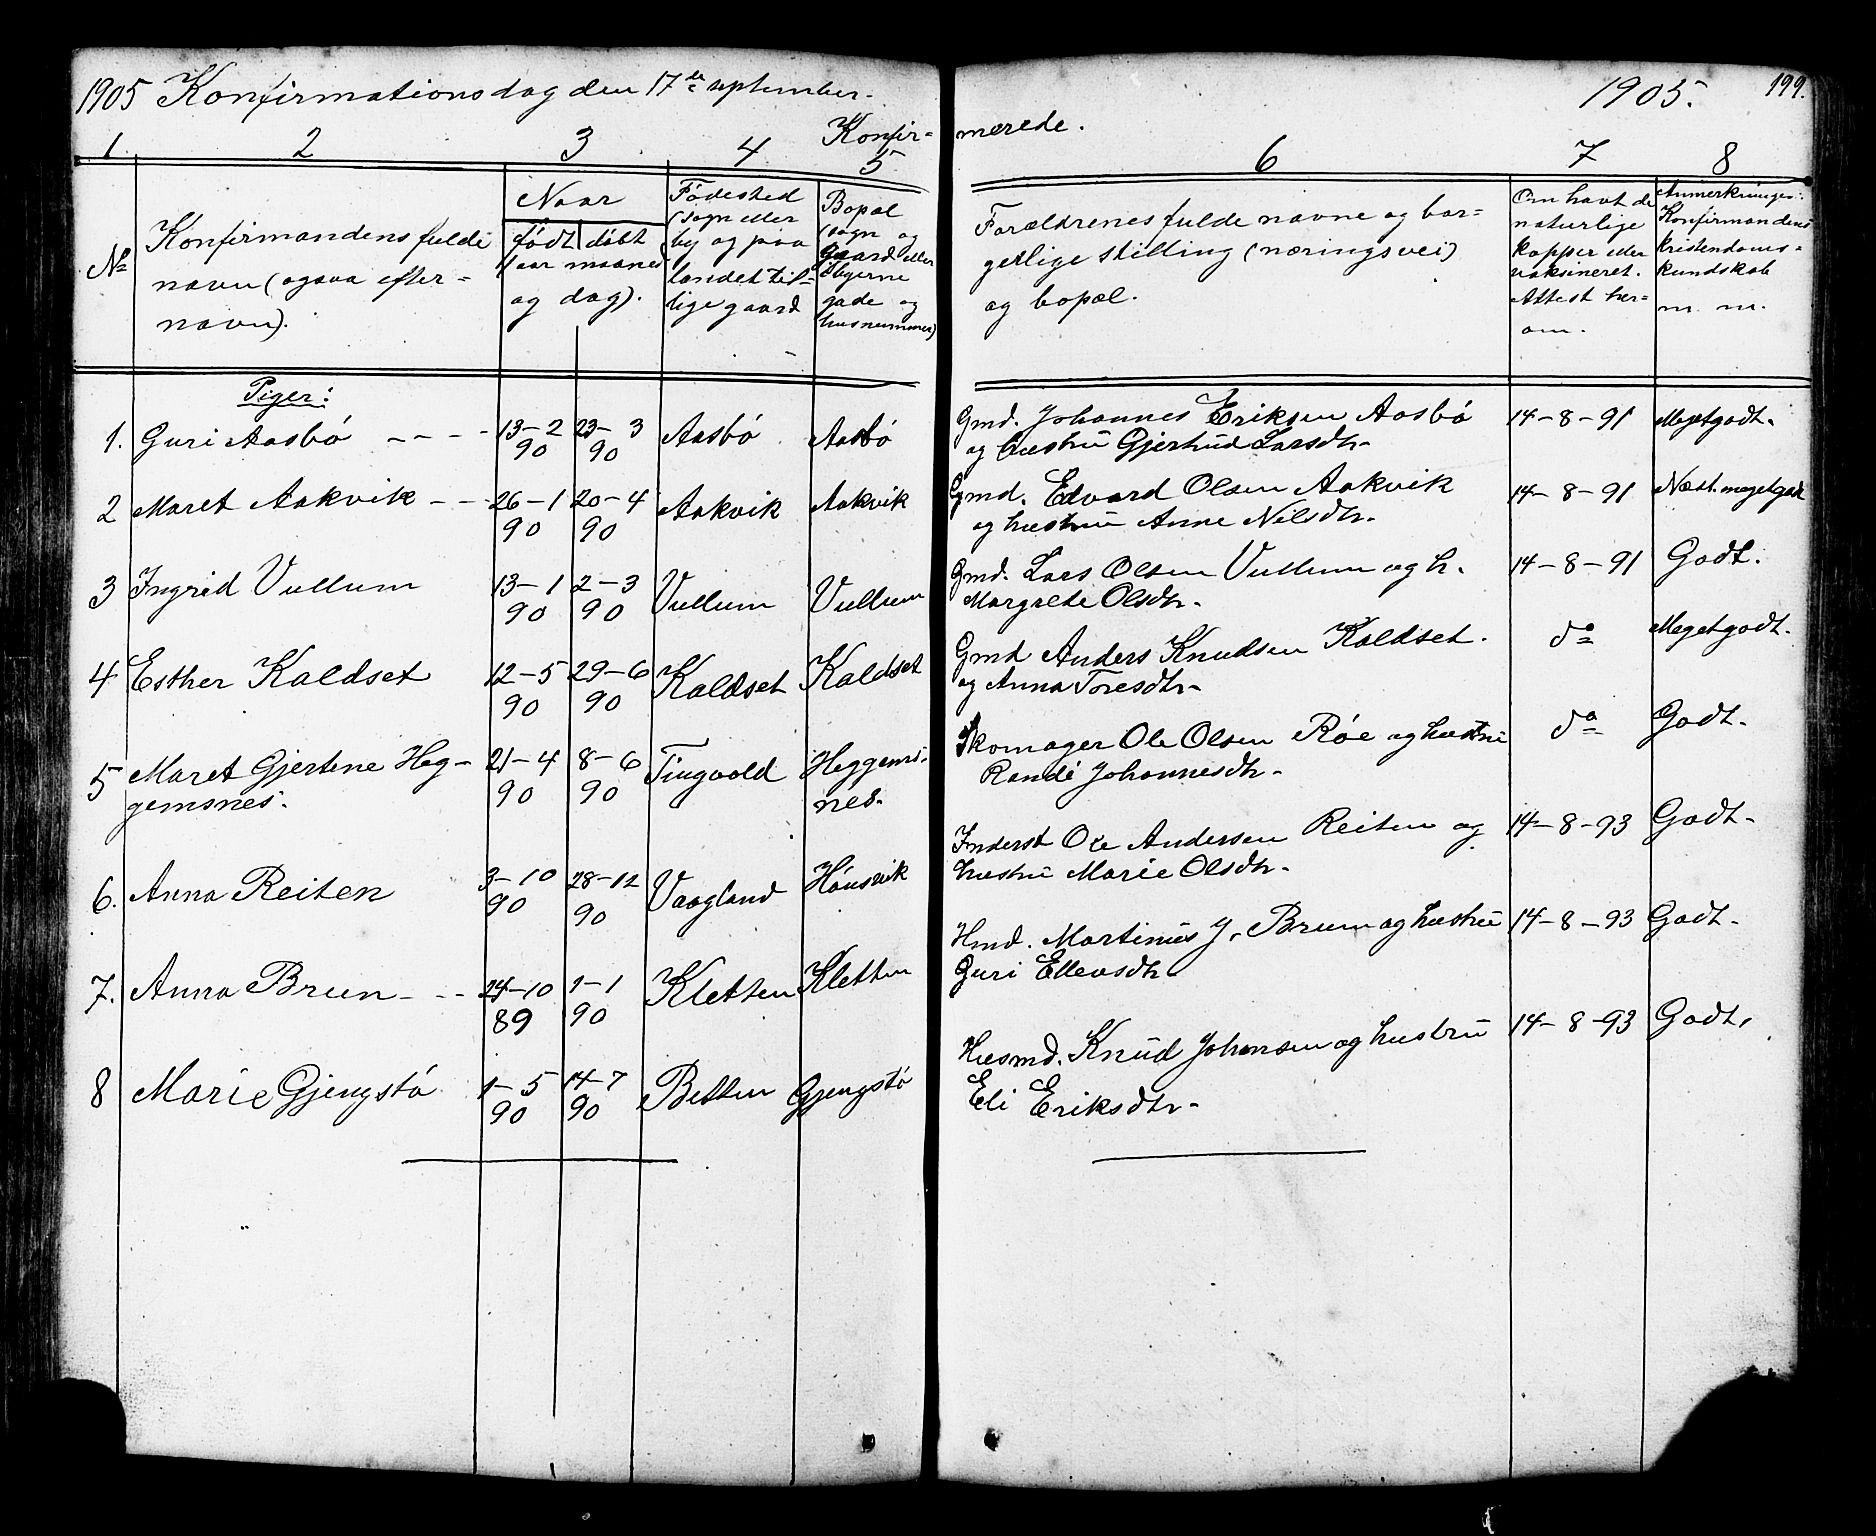 1905 Konfirmationsdag den 17de september.
Konfir=
1 2 3 4 5
No
Konfirmandens fulde
navn (ogsaa efter=
navn).
Naar
født døbt
(aar maaned
og dag).
Fødested
(sogn eller
by og paa
landet til=
lige gaard
Bopæl
(sogn og
gaard eller
i byerne
gade og
husnummer)
Piger:
1. Guri Aasbø - - - - 13-2 90 23-3 90 Aasbø Aasbø
2 Maret Aakvik - - - 26-1 90 20-4 90 Aakvik Aakvik
3 Ingrid Vullum 13-1 90 2-3 90 Vullum Vullum
4 Esther Kaldset 12-5 90 29-6 90 Kaldset Kaldset
5 Maret Gjertine Heg-
gemsnes. 21-4 90 8-6 90 Tingvold Heggems-
nes.
6. Anna Reiten 3-10 90 28-12 90 Vaagland
7. Anna Brun - - - 24-10 89 1-1 90 Kletten Kletten
8 Marie Gjengstø 1-5 90 14-7 90 Betten Gjengstø
1905. 199.
mærede.
6 7 8
Forældrenes fulde navne og bor=
gerlige stilling (næringsvei)
og bopæl.
Om havt de
naturlige
kopper eller
vaksineret.
Attest her=
om.
Anmerkninger:
Konfirmandens
kristendoms=
kundskab
m. m.
Gmd. Johannes Eriksen Aasbø 14-8-91 Megetgodt.
og hustru Gjertrud Larsdtr.
Gmd. Edvard Olsen Aakvik 14-8-91 Næst. megetgodt
og hustru Anne Nilsdtr.
Gmd. Lars Olsen Vullum og h. 14-8-91 Godt.
Margrete Olsdtr.
Gmd Anders Knudsen Kaldset. do Megetgodt.
og Anna Toresdtr.
Skomager Ole Olsen Røe og hustru do Godt.
Randi Johannesdtr.
Inderst Ole Andersen Reiten og 14-8-93 Godt.
hustru Marie Olsdtr.
Hmd. Martinus J. Brun og hustru 14-8-93 Godt.
Guri Ellevsdtr
Husmd. Knud Johansen og hustru 14-8-93 Godt.
Eli Eriksdtr.